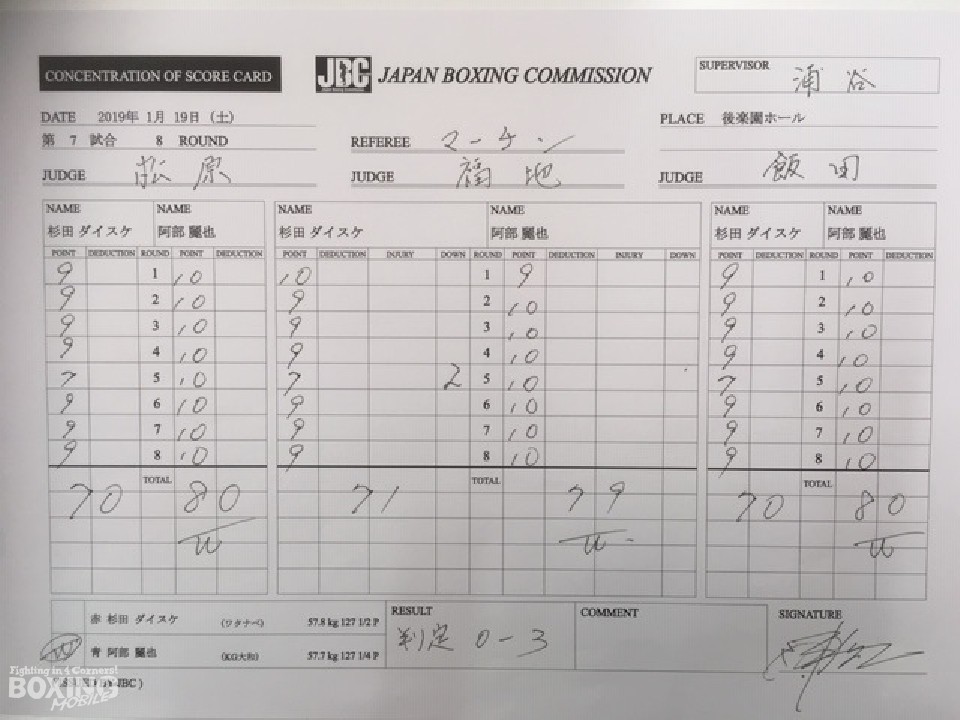 CONCENTRATION OF SCORE CARD
JBC JAPAN BOXING COMMISSION
SUPERVISOR 浦谷
DATE 2019年 1月 19日 (土)
PLACE 後楽園ホール
第 7 試合 8 ROUND
REFEREE マーチン
JUDGE 松原 JUDGE 福地 JUDGE 飯田
NAME NAME NAME NAME NAME NAME
杉田 ダイスケ 阿部 麗也 杉田 ダイスケ 阿部 麗也 杉田 ダイスケ 阿部 麗也
POINT DEDUCTION ROUND POINT DEDUCTION POINT DEDUCTION INJURY DOWN ROUND POINT DEDUCTION INJURY DOWN POINT DEDUCTION ROUND POINT DEDUCTION
9 1 10 10 1 9 9 1 10
9 2 10 9 2 10 9 2 10
9 3 10 9 3 10 9 3 10
9 4 10 9 4 10 9 4 10
7 5 10 7 2 5 10 7 5 10
9 6 10 9 6 10 9 6 10
9 7 10 9 7 10 9 7 10
9 8 10 9 8 10 9 8 10
TOTAL TOTAL TOTAL
70 80 71 79 70 80
W W W
赤 杉田 ダイスケ (ワタナベ) 57.8 kg 127 1/2 P
RESULT
判定 0-3
COMMENT
SIGNATURE
W 青 阿部 麗也 (KG大和) 57.7 kg 127 1/4 P
Fighting in 4 Corners!
BOXING
MOBILE
JBC )